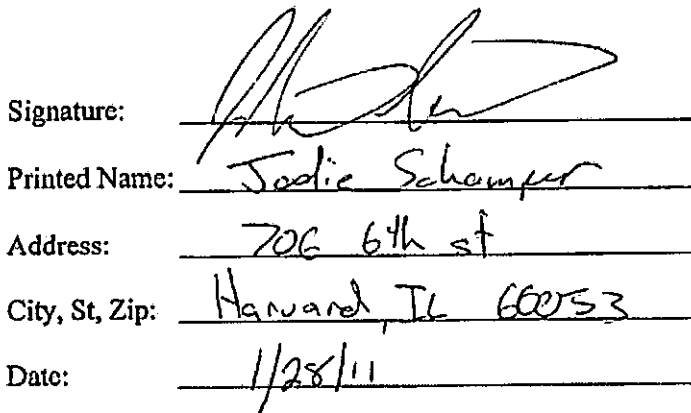 Signature:
Printed Name: Jodie Schamper
Address: 706 6th st
City, St, Zip: Harvard, IL 60053
Date: 1/28/11